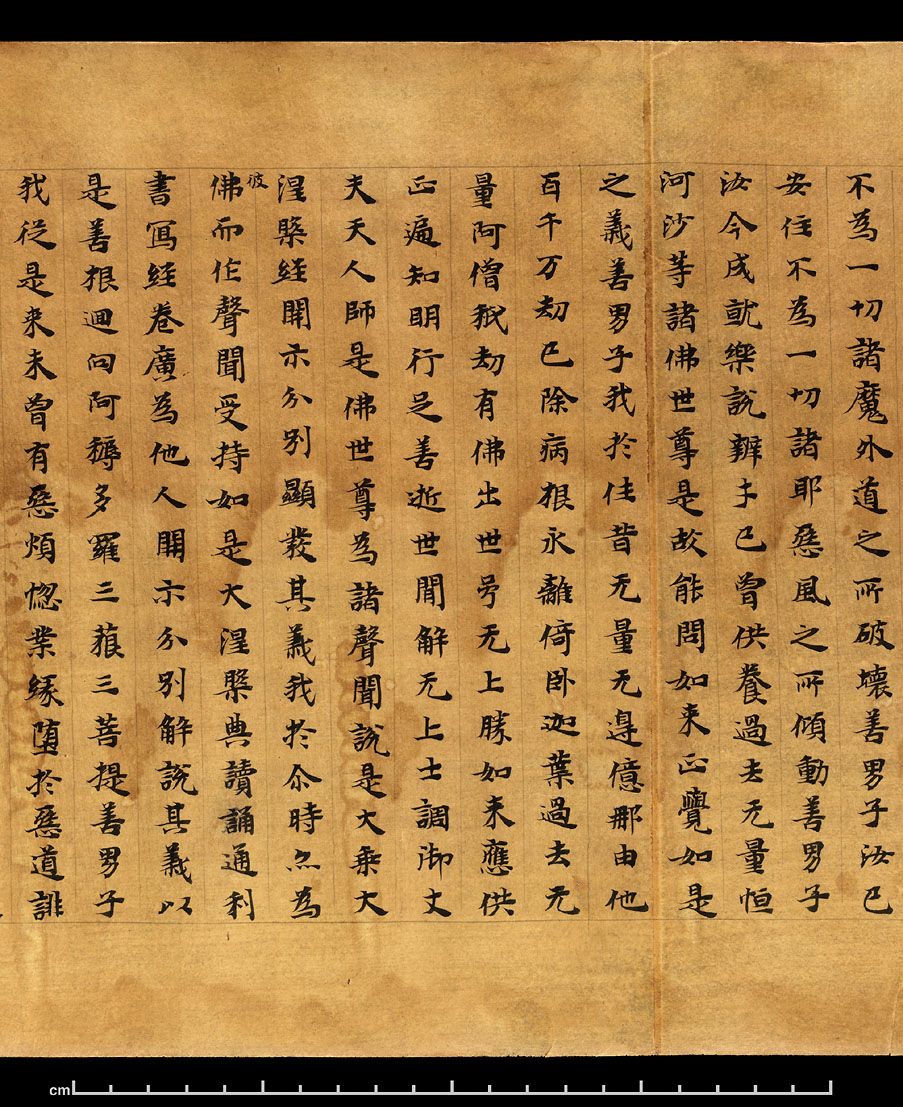 不為一切諸魔外道之所破壞善男子汝已
安住不為一切諸耶惡風之所傾動善男子
汝今成就樂說辯才已曾供養過去无量恒
河沙等諸佛世尊是故能問如來正覺如是
之義善男子我於往昔无量无邊億那由他
百千万劫已除病根永離倚卧迦葉過去无
量阿僧祇劫有佛出世号无上勝如來應供
正遍知明行足善逝世間解无上士調御丈
夫天人師是佛世尊為諸聲聞說是大乘大
涅槃經開示分別顯發其義我於尒時亦為
彼佛而作聲聞受持如是大涅槃典讀誦通利
書寫經卷廣為他人開示分別解說其義以
是善根迴向阿耨多羅三藐三菩提善男子
我從是來未曾有惡煩惚業緣墮於惡道誹
cm